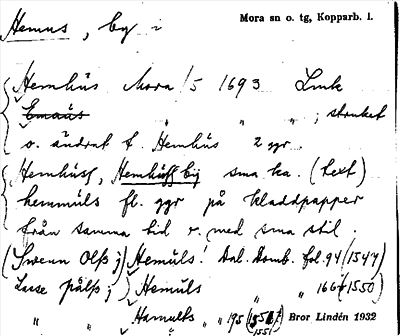 Hemus, by
Mora sn o. tg, Kopparb. l.
Hemhüs Mora 1/5 1693 Lmk
Emaüs " " " ; struket
o. ändrat t. Hemhüs 2 ggr
Hemhüsf, Hemhüss by sma ka. (text)
hemmüls fl. ggr på kladdpapper
från samma tid o. med sma stil.
(Swenn Olss j) Hemüls! Dal. Domb. fol. 94 (1547)
Lasse pålss j) Hemüls " " 166 (1550)
" Hamuls " " 195 (1551)
Bror Lindén 1932